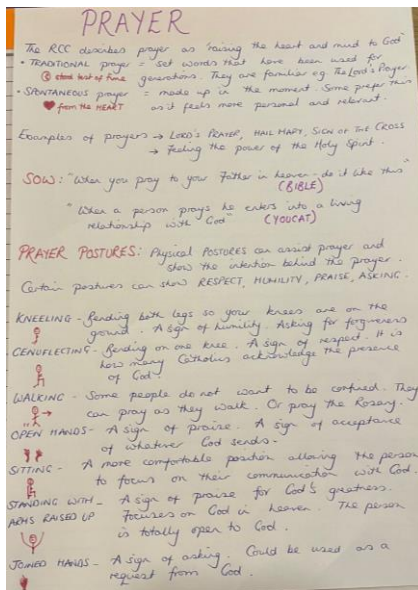 PRAYER
The RCC describes prayer as "raising the heart and mind to God"
• TRADITIONAL prayer = set words that have been used for
stood test of time generations. They are familiar eg. The Lord's Prayer
• SPONTANEOUS prayer = made up in the moment. Some prefer this
from the HEART as it feels more personal and relevant.
Examples of prayers → LORD'S PRAYER, HAIL MARY, SIGN OF THE CROSS
→ Feeling the power of the Holy Spirit.
SOW: "When you pray to your Father in heaven - do it like this"
(BIBLE)
"When a person prays he enters into a living
relationship with God" (YOUCAT)
PRAYER POSTURES: Physical POSTURES can assist prayer and
show the intention behind the prayer.
Certain postures can show RESPECT, HUMILITY, PRAISE, ASKING.
KNEELING - Bending both legs so your knees are on the
ground. A sign of humility. Asking for forgiveness
GENUFLECTING - Bending on one knee. A sign of respect. It is
how many Catholics acknowledge the presence
of God.
WALKING - Some people do not want to be confined. They
can pray as they walk. Or pray the Rosary.
OPEN HANDS - A sign of praise. A sign of acceptance
of whatever God sends.
SITTING - A more comfortable position allowing the person
to focus on their communication with God.
STANDING WITH - A sign of praise for God's greatness.
ARMS RAISED UP Focuses on God in heaven. The person
is totally open to God.
JOINED HANDS - A sign of asking. Could be used as a
request from God.